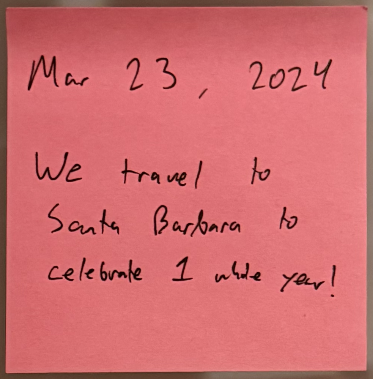 Mar 23, 2024
We travel to
Santa Barbara to
celebrate 1 whole year!